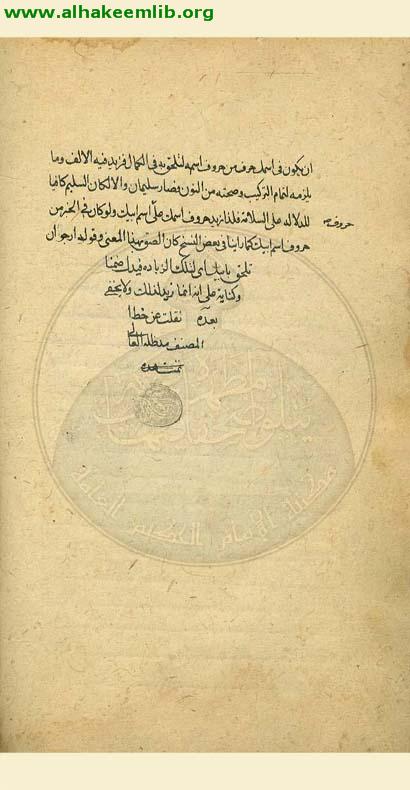 www.alhakeemlib.org
ان يكون في اسمك حرف من حروف اسمه لتلحق به في الكمال فزيد فيه الالف وما
يلزمه لتمام التركيب وصحته من النون فصار سليمان والا لكان السليم كافيا
للدلالة على السلامة فلذا زيد حروف اسمك على اسم ابيك ولو كان في الخبر من
حروف
حروف اسم ابيك كما راينا في بعض النسخ كان الصق بهذا المعنى وقوله ارجو ان
تلحق بابيك اي لتلك الزيادة فيدل ضمنا
وكناية على انه انما زيد لذلك ولا يخفى
بعده نقلت من خط
المصنف مد ظله العالي